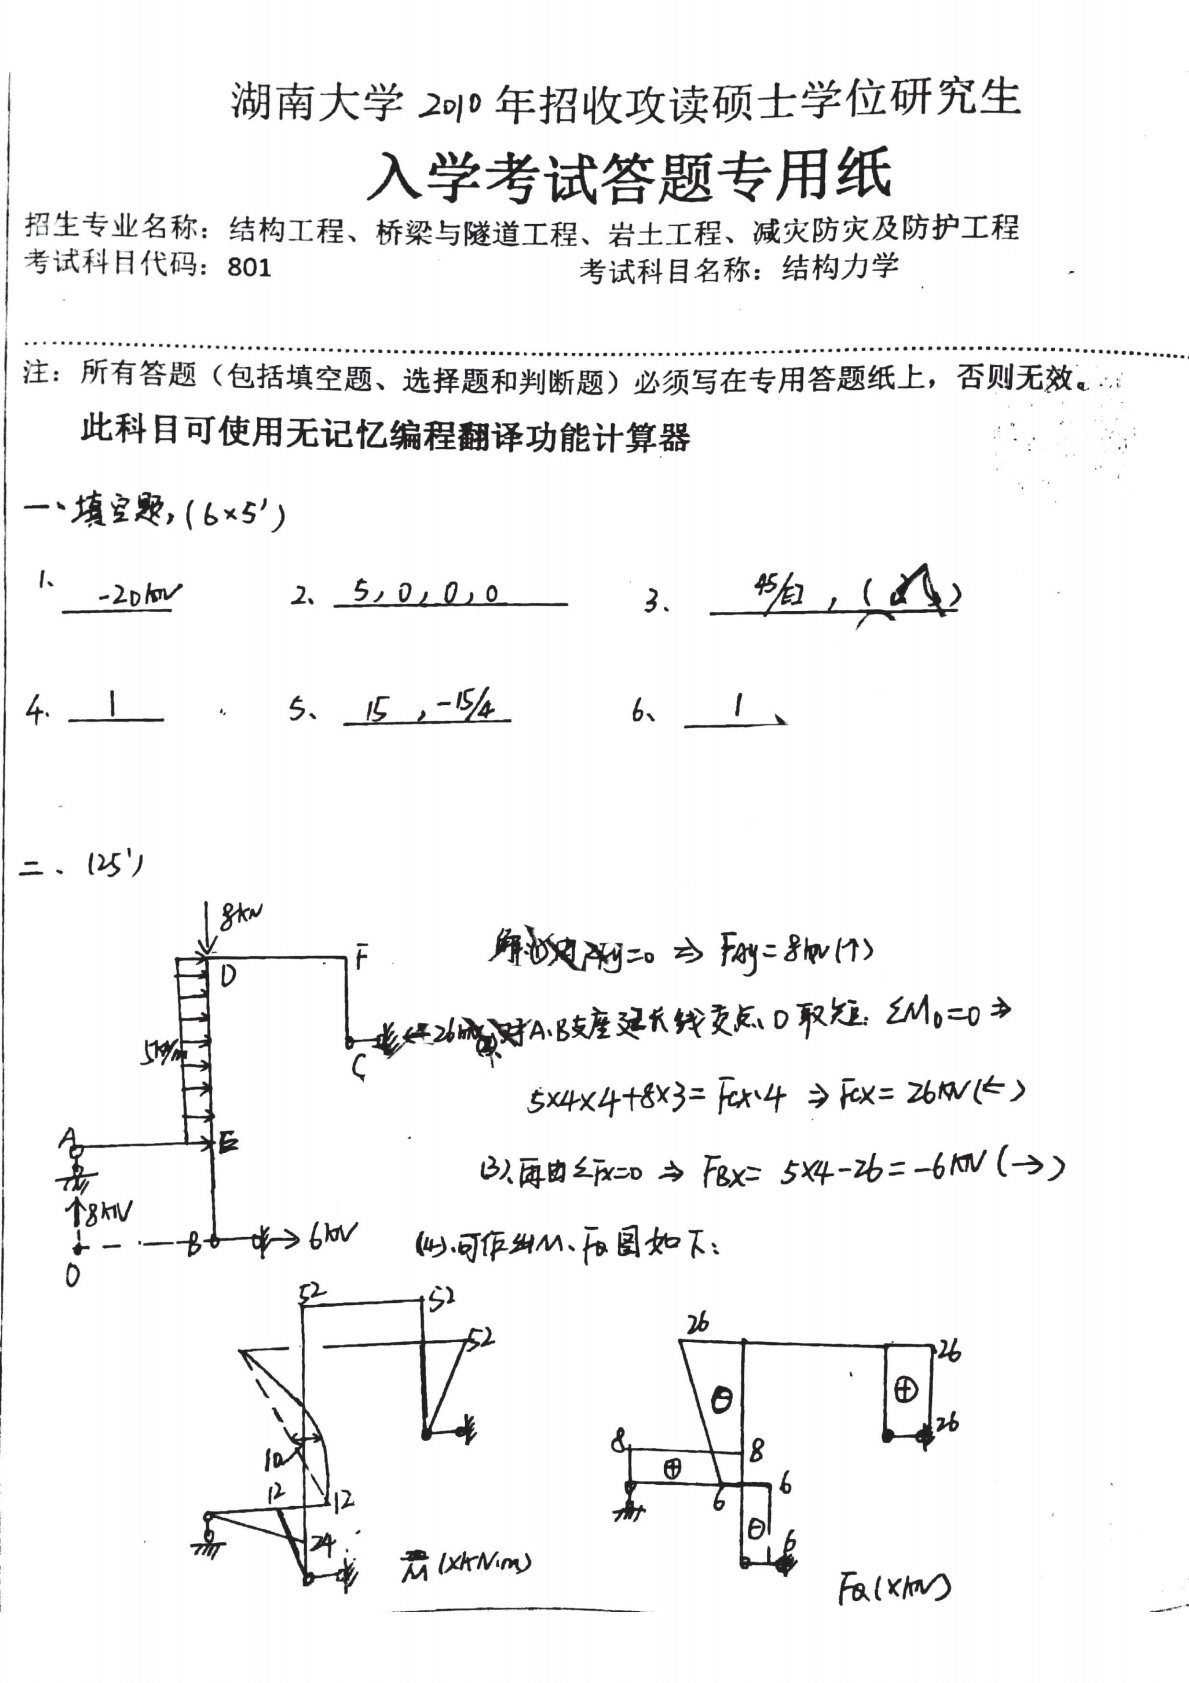 湖南大学 2010 年招收攻读硕士学位研究生
入学考试答题专用纸
招生专业名称：结构工程、桥梁与隧道工程、岩土工程、减灾防灾及防护工程
考试科目代码：801 考试科目名称：结构力学
注：所有答题（包括填空题、选择题和判断题）必须写在专用答题纸上，否则无效。
此科目可使用无记忆编程翻译功能计算器
一、填空题，(6×5')
1、 -20kN 2、 5, 0, 0, 0 3、 45/EI , ( )
4. 1 5、 15 , -15/4 6、 1 、
二、(25')
8kN
D F
5kN/m
C
A E
8kN
O B 6kN
解 =0 ⇒ FAy=8kN(↑)
对A、B支座延长线交点O取矩: ΣM₀=0 ⇒
5×4×4+8×3=Fcx·4 ⇒ Fcx=26kN(←)
(3)、再由ΣFx=0 ⇒ FBx=5×4-26=-6kN(→)
(4)、可作出M、FQ图如下:
52 52
52
10
12 12
24
M (×kN·m)
26 26
⊖ ⊕
26
8 8
⊕
6 6
⊖
6
FQ(×kN)